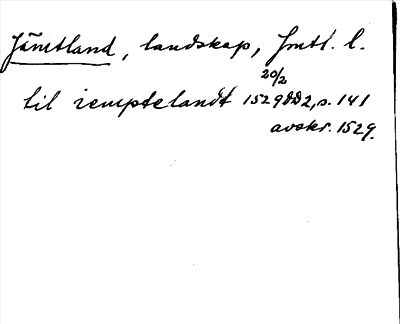 Jämtland, landskap, Jmtl. l.
20/2
til iemptelandt 1529 DD2, s. 141
avskr. 1529.